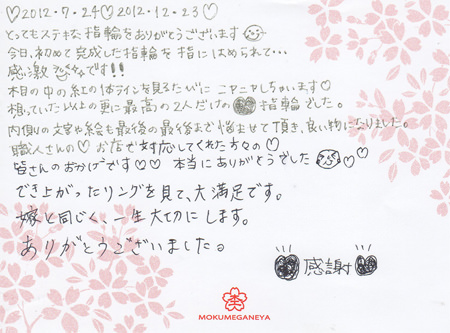 ♡2012.7.24♡2012.12.23♡
とってもステキな指輪をありがとうございます
今日、初めて完成した指輪を指にはめられて…
感激です!!
木目の中の紅の体ラインを見るたびに ニヤニヤしちゃいます♡
想っていた以上の更に最高の2人だけの 指輪でした。
内側の文字や絵も最後の最後まで悩ませて頂き、良い物になりました。
職人さんの♡お店で対応してくれた方々の♡
皆さんのおかげです♡♡ 本当にありがとうでした ♡♡
でき上がったリングを見て、大満足です。
嫁と同じく、一生大切にします。
ありがとうございました。
感謝
MOKUMEGANEYA